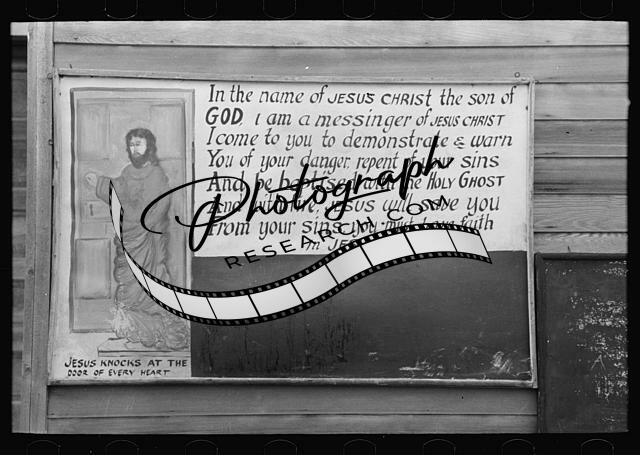 In the name of JESUS CHRIST the son of
GOD. I am a messinger of JESUS CHRIST
I come to you to demonstrate & warn
You of your danger. repent of your sins
And be baptised with the HOLY GHOST
And with fire. JESUS will save you
From your sins you must have faith
in JES
JESUS KNOCKS AT THE
DOOR OF EVERY HEART
Photograph
RESEARCH.COM